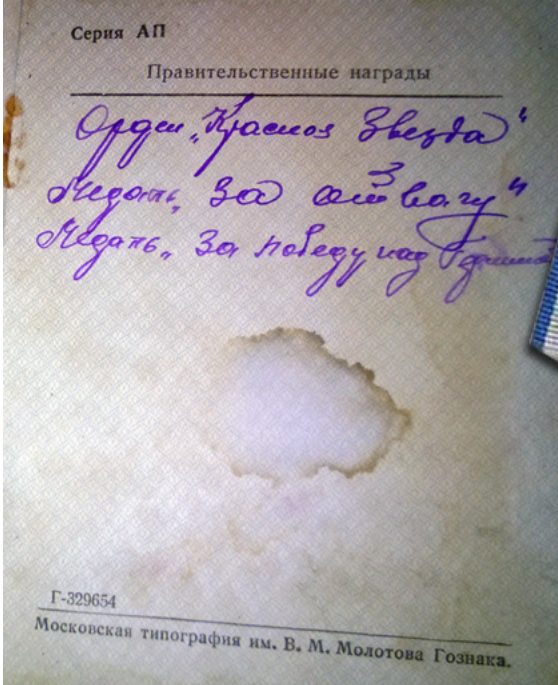 Серия АП
Правительственные награды
Орден „Красная Звезда"
Медаль „За отвагу"
Медаль „За победу над
Г-329654
Московская типография им. В. М. Молотова Гознака.